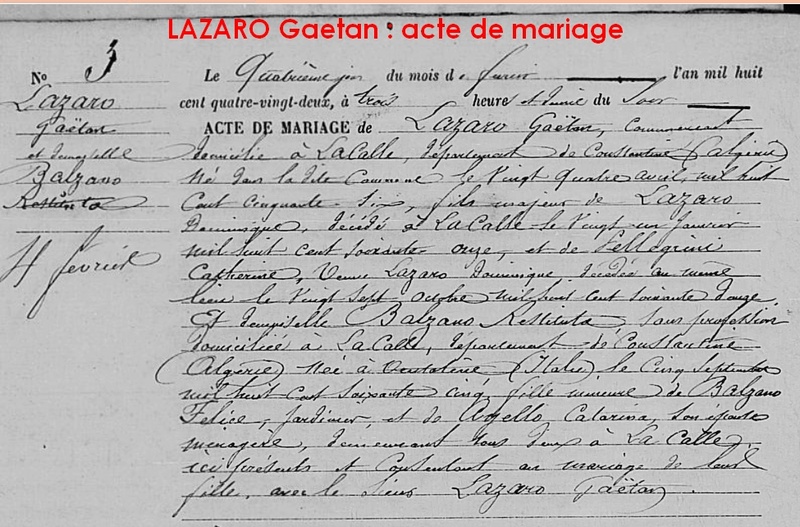 LAZARO Gaetan : acte de mariage
N° 3
Lazaro
Gaëtan
et demoiselle
Balzano
Restituta
4 février
Le Quatrième jour du mois de février l'an mil huit
cent quatre-vingt-deux, à trois heures et demie du soir
ACTE DE MARIAGE de Lazaro Gaëtan, commerçant
domicilié à La Calle, département de Constantine (Algérie)
né dans la dite Commune le vingt quatre avril mil huit
Cent cinquante six, fils majeur de Lazaro
Dominique, décédé à La Calle le vingt un janvier
mil huit cent soixante onze, et de Pellegrini
Catherine, Veuve Lazaro Dominique, décédée au même
lieu le vingt sept octobre mil huit cent soixante douze.
Et demoiselle Balzano Restituta, sans profession
domiciliée à La Calle, département de Constantine
(Algérie) née à (Italie) le cinq septembre
mil huit cent soixante cinq, fille mineure de Balzano
Felice, jardinier, et de Agello Catarina, son épouse
ménagère, demeurant tous deux à La Calle,
ici présents et consentant au mariage de leur
fille, avec le sieur Lazaro Gaëtan.